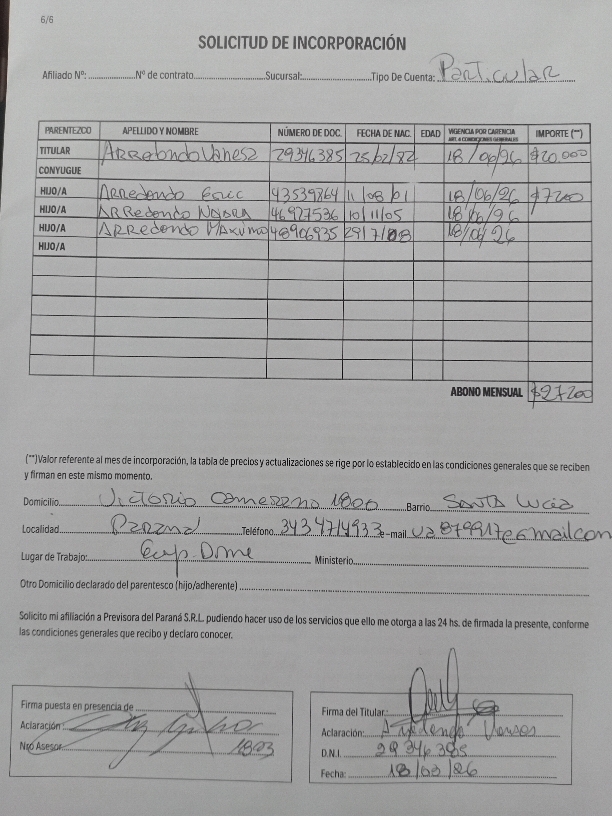 6/6
SOLICITUD DE INCORPORACIÓN
Afiliado Nº: Nº de contrato Sucursal: Tipo De Cuenta: Particular
PARENTEZCO APELLIDO Y NOMBRE NÚMERO DE DOC. FECHA DE NAC. EDAD VIGENCIA POR CARENCIA ART. 4 CONDICIONES GENERALES IMPORTE (**)
TITULAR Arredondo Vanesa 29346385 25/02/82 18/06/26 $20.000
CONYUGUE
HIJO/A Arredondo Eric 43539864 11/08/01 18/06/26 $7200
HIJO/A Arredondo 46927536 10/11/05 18/06/26
HIJO/A Arredondo Maximo 48906935 29/7/08 18/06/26
HIJO/A
ABONO MENSUAL $27200
(**)Valor referente al mes de incorporación, la tabla de precios y actualizaciones se rige por lo establecido en las condiciones generales que se reciben
y firman en este mismo momento.
Domicilio Victorio 1800 Barrio Santa Lucia
Localidad Parana Teléfono 3434714933 e-mail va879917@gmailcom
Lugar de Trabajo: Ministerio
Otro Domicilio declarado del parentesco (hijo/adherente)
Solicito mi afiliación a Previsora del Paraná S.R.L. pudiendo hacer uso de los servicios que ello me otorga a las 24 hs. de firmada la presente, conforme
las condiciones generales que recibo y declaro conocer.
Firma puesta en presencia de
Aclaración:
Nro Asesor 1803
Firma del Titular:
Aclaración: Arredondo Vanesa
D.N.I. 29346385
Fecha: 18/03/26